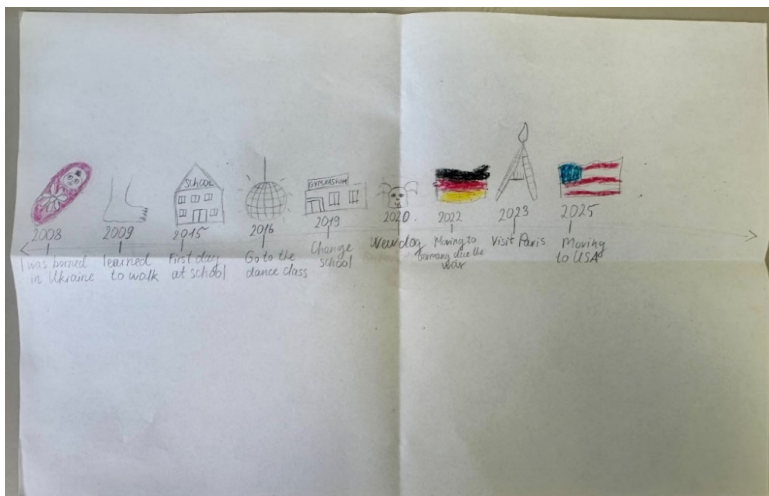 SCHOOL
GYMNASIUM
2008
I was borned
in Ukraine
2009
learned
to walk
2015
First day
at school
2016
Go to the
dance class
2019
Change
school
2020
New dog
2022
Moving to
Germany due the
war
2023
Visit Paris
2025
Moving
to USA